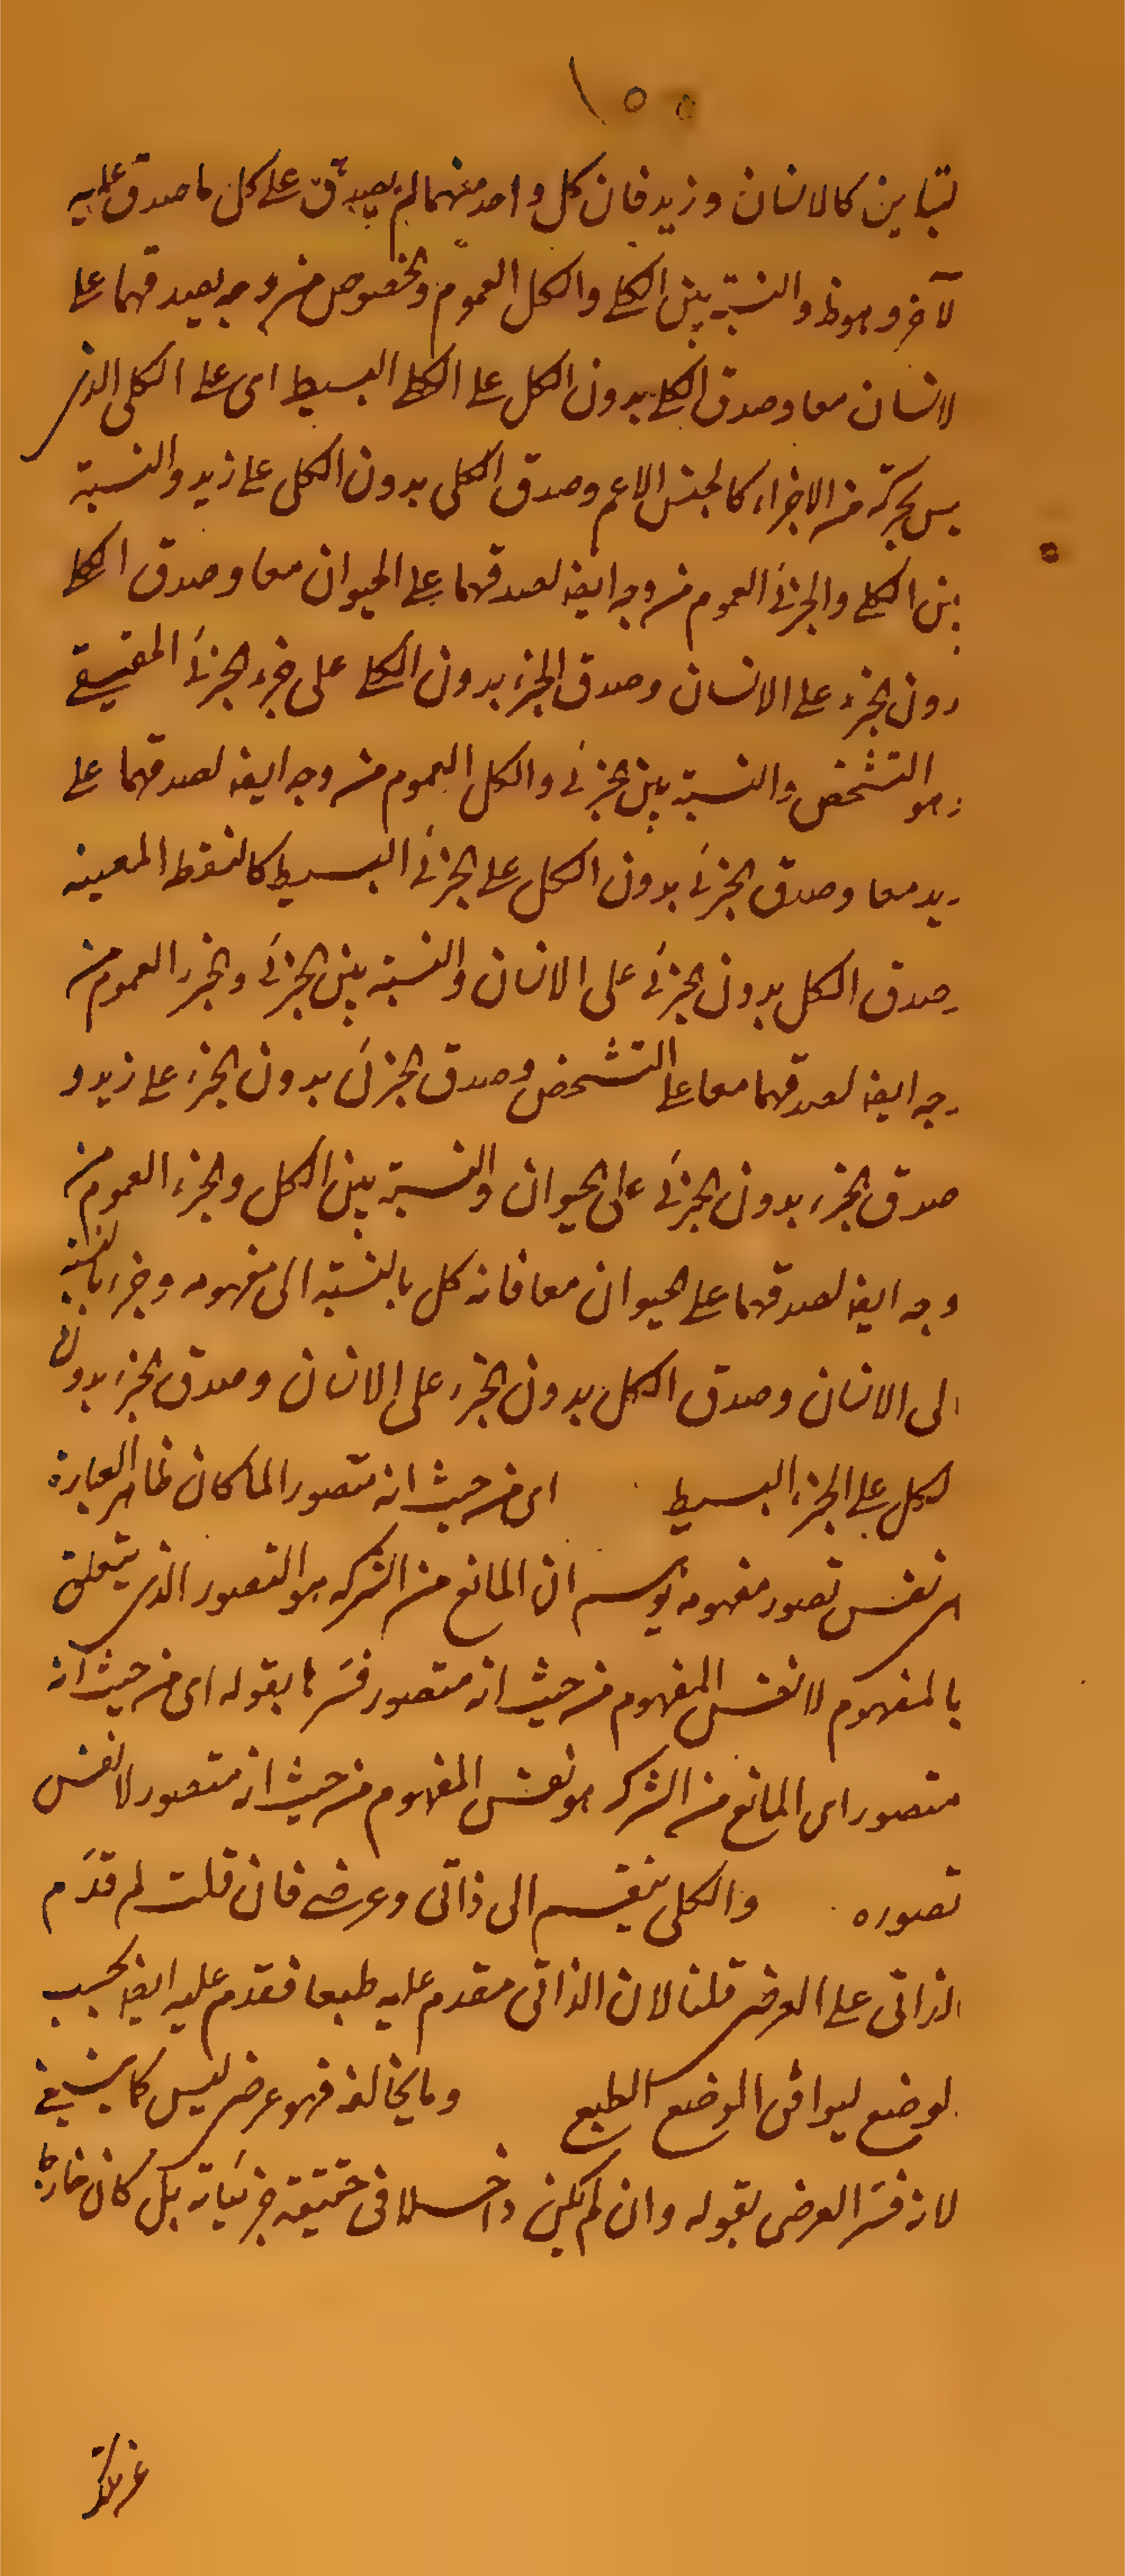 ١٥٥
لتباين كالانسان وزيد فان كل واحد منهما لم يصدق على كل ما صدق عليه
لآخر وهو ظ والنسبة بين الكلي والكل العموم والخصوص من وجه لصدقهما على
لانسان معا وصدق الكلي بدون الكل على الكلي البسيط اى على الكلي الذى
يس بمركّب من الاجزاء كالجنس الاعم وصدق الكلي بدون الكل على زيد والنسبة
بين الكلي والجزئي العموم من وجه ايضا لصدقهما على الحيوان معا وصدق الكلي
دون الجزء على الانسان وصدق الجزء بدون الكلي على جزء الجزئي الحقيقي
وهو التشخص والنسبة بين الجزئي والكل العموم من وجه ايضا لصدقهما على
زيد معا وصدق الجزئي بدون الكل على الجزئي البسيط كالنقط المعينه
وصدق الكل بدون الجزئي على الانسان والنسبة بين الجزئي والجزء العموم من
وجه ايضا لصدقهما معا على التشخص وصدق الجزئي بدون الجزء على زيد و
صدق الجزء بدون الجزئي على الحيوان والنسبة بين الكل والجزء العموم من
وجه ايضا لصدقهما على الحيوان معا فانه كل بالنسبة الى مفهومه وجزء بالنسبة
الى الانسان وصدق الكل بدون الجزء على الانسان وصدق الجزء بدون
لكل على الجزء البسيط اى من حيث انه متصور لما كان ظاهر العبارة
اى نفس تصور مفهومه يوهم ان المانع من الشركه هو التصور الذى يتعلق
بالمفهوم لا نفس المفهوم من حيث انه متصور فسّرها بقوله اى من حيث انه
متصور اى المانع من الشركه هو نفس المفهوم من حيث انه متصور لا نفس
تصوره والكلي ينقسم الى ذاتى وعرضى فان قلت لم قدّم
الذاتى على العرضى قلنا لان الذاتى مقدم عليه طبعا فقدم عليه ايضا بحسب
لوضع ليوافق الوضع الطبع وما يخالفه فهو عرضى ليس كما ينبغي
لانه فسّر العرضى بقوله وان لم يكن داخلا فى حقيقة جزئياته بل كان خارجا